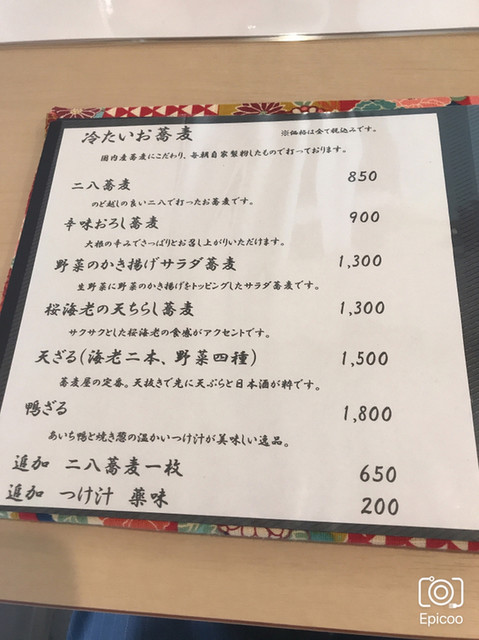 冷たいお蕎麦 ※価格は全て税込みです。
国内産蕎麦にこだわり、毎朝自家製粉したもので打っております。
二八蕎麦 850
のど越しの良い二八で打ったお蕎麦です。
辛味おろし蕎麦 900
大根の辛みでさっぱりとお召し上がりいただけます。
野菜のかき揚げサラダ蕎麦 1,300
生野菜に野菜のかき揚げをトッピングしたサラダ蕎麦です。
桜海老の天ちらし蕎麦 1,300
サクサクとした桜海老の食感がアクセントです。
天ざる(海老二本、野菜四種) 1,500
蕎麦屋の定番。天抜きで先に天ぷらと日本酒が粋です。
鴨ざる 1,800
あいち鴨と焼き葱の温かいつけ汁が美味しい逸品。
追加 二八蕎麦一枚 650
追加 つけ汁 薬味 200
Epicoo